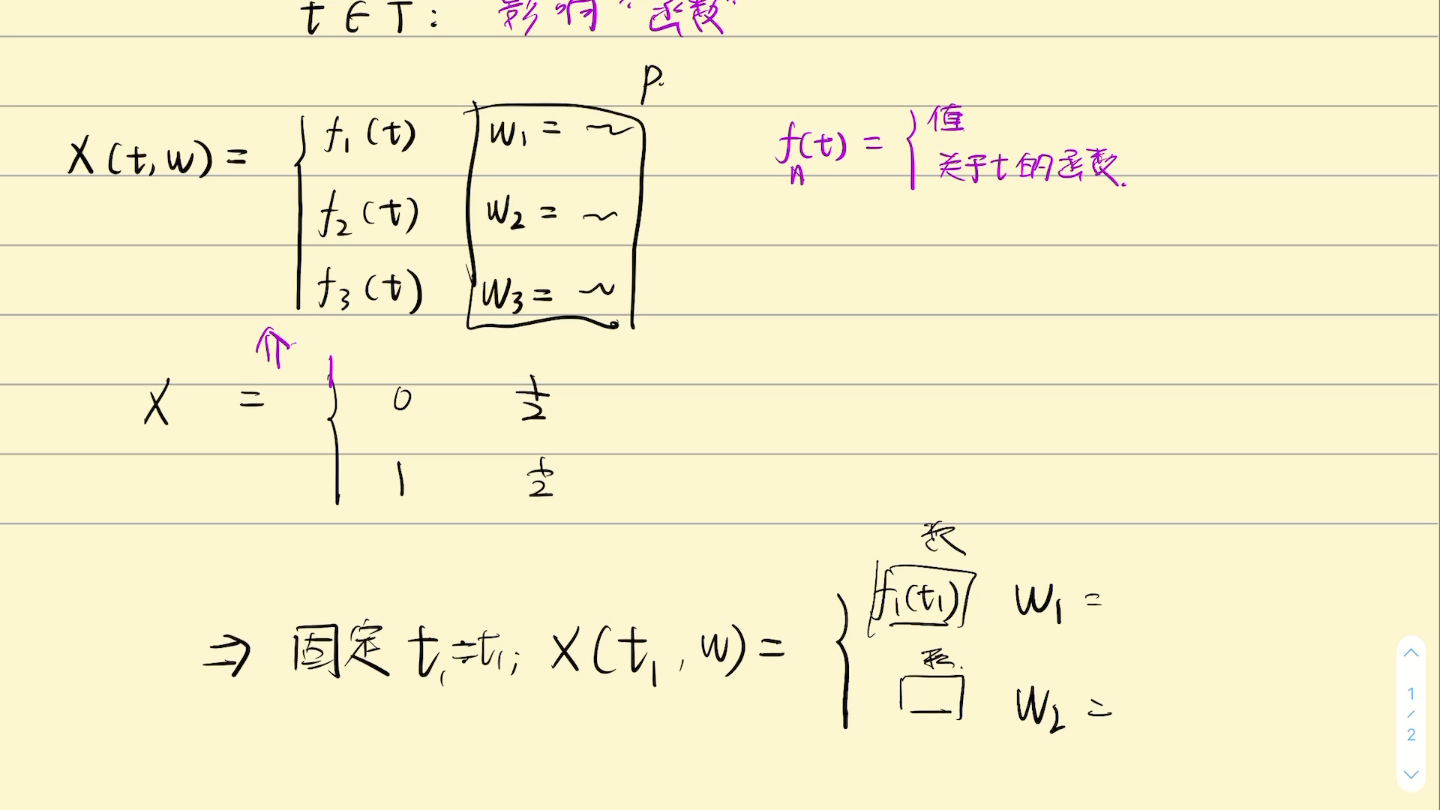 t ∈ T: 影响“函数”
P.
X(t,w) = { f₁(t) w₁ = ~
f₂(t) w₂ = ~
f₃(t) w₃ = ~
f(t) = { 值
关于t的函数.
X = { 0 1/2
1 1/2
⇒ 固定 t₁=t₁; X(t₁,w) = { f₁(t₁) w₁ =
w₂ =
1/2